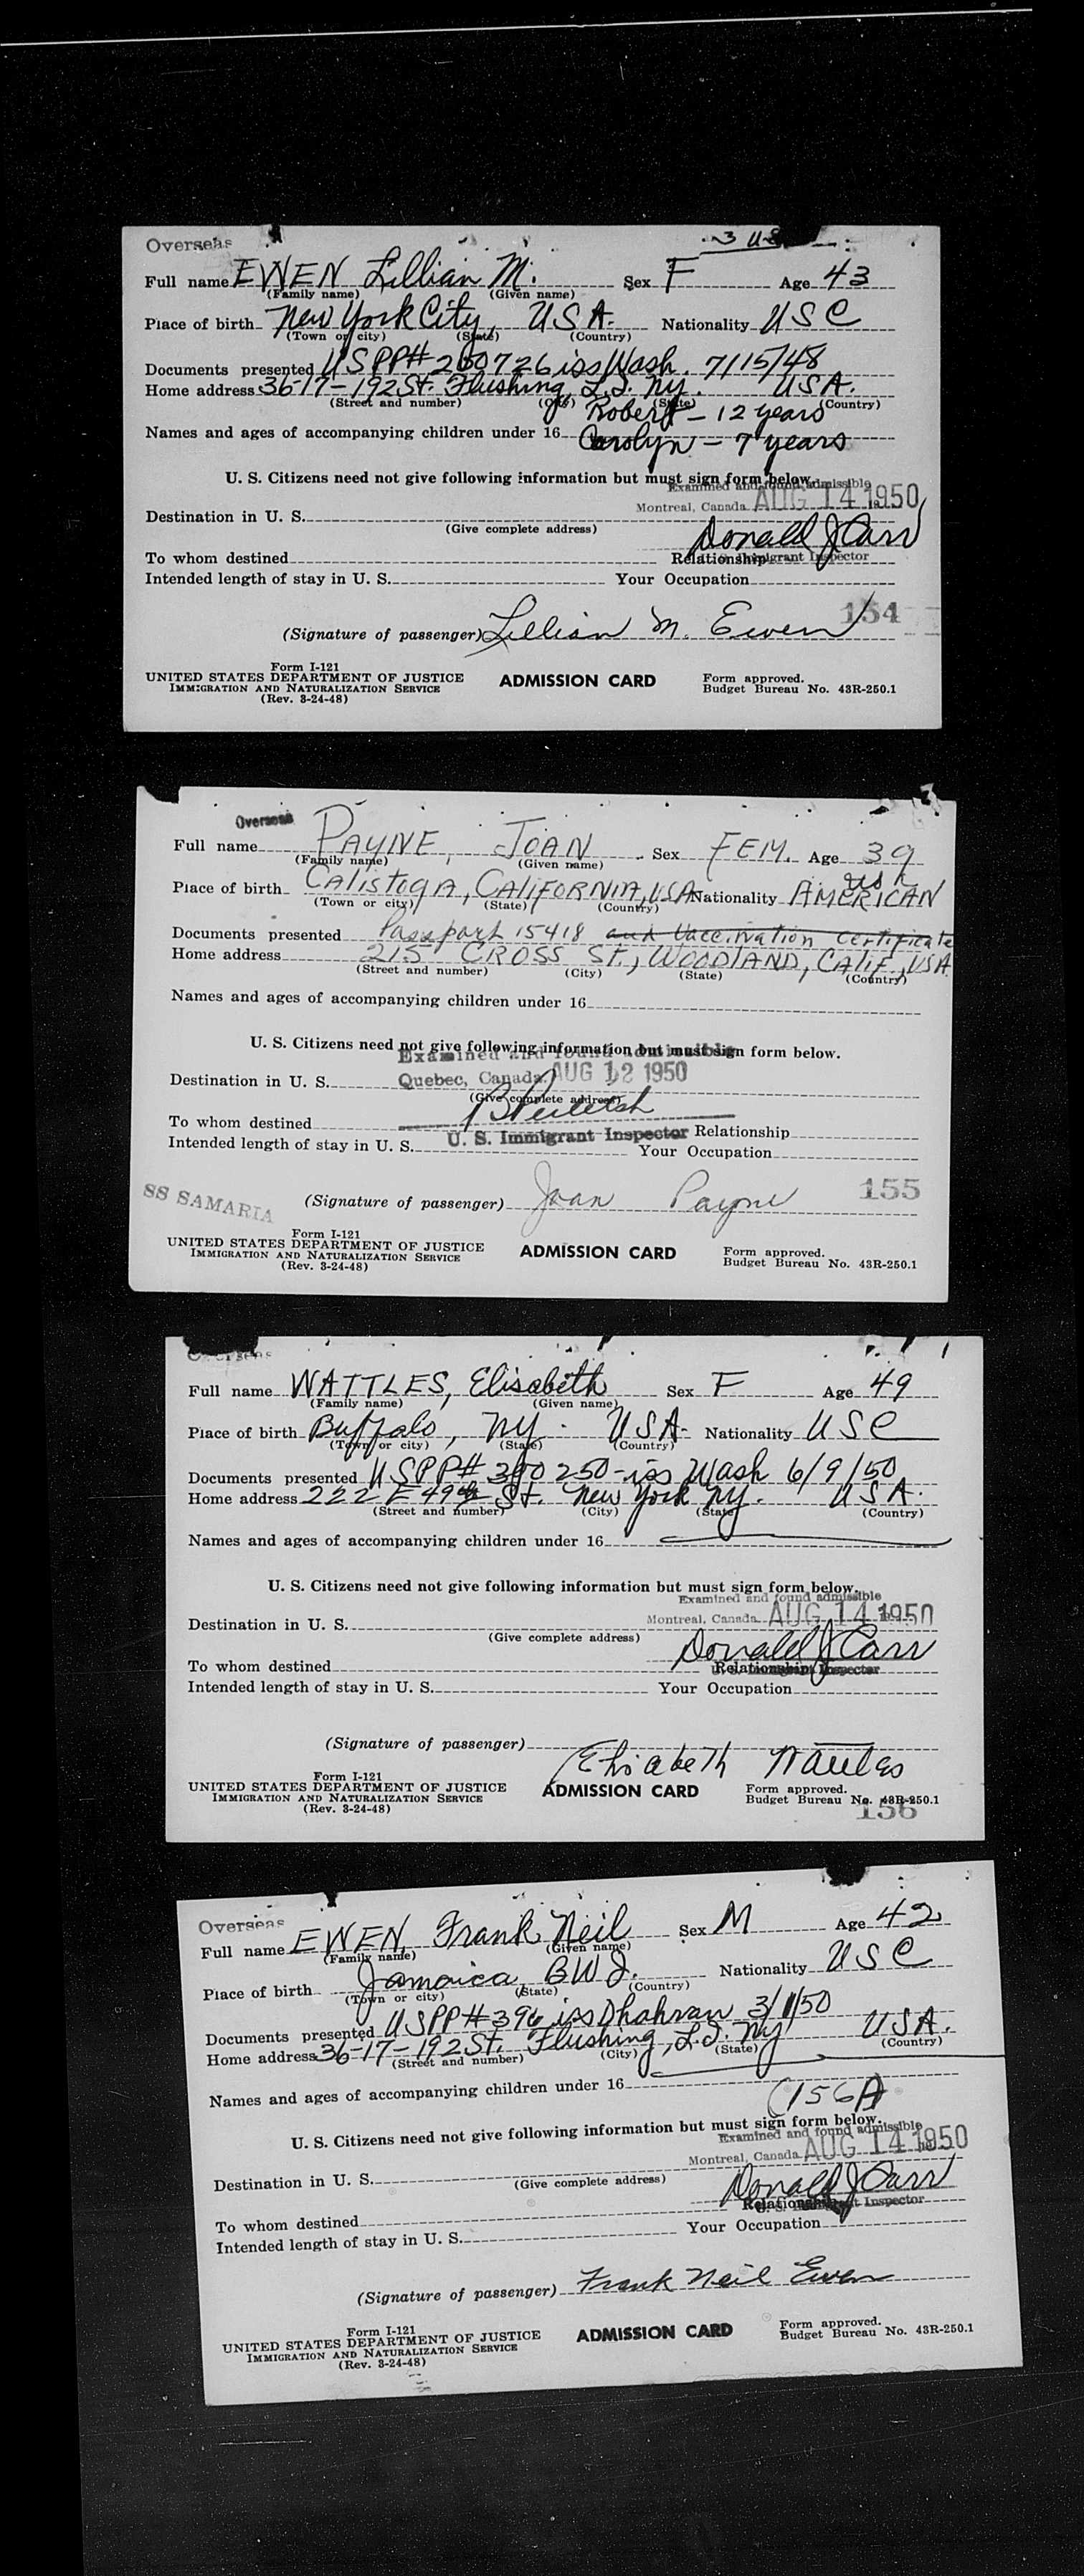 Overseas
3 US
Full name EWEN Lillian M. Sex F Age 43
(Family name) (Given name)
Place of birth New York City, USA. Nationality USC
(Town or city) (State) (Country)
Documents presented USPP# 200726 iss Wash. 7/15/48
Home address 36-17-192 St. Flushing, L.I. NY. USA.
(Street and number) (City) (State) (Country)
Robert - 12 years
Names and ages of accompanying children under 16 Carolyn - 7 years
U. S. Citizens need not give following information but must sign form below.
Examined and found admissible
Montreal, Canada AUG 14 1950
Destination in U. S.
(Give complete address) Donald J Carr
To whom destined Relationship Immigrant Inspector
Intended length of stay in U. S. Your Occupation
154
(Signature of passenger) Lillian M. Ewen
Form I-121
UNITED STATES DEPARTMENT OF JUSTICE ADMISSION CARD Form approved.
IMMIGRATION AND NATURALIZATION SERVICE Budget Bureau No. 43R-250.1
(Rev. 3-24-48)
Overseas
Full name PAYNE, JOAN Sex FEM. Age 39
(Family name) (Given name)
usc
Place of birth CALISTOGA, CALIFORNIA, USA Nationality AMERICAN
(Town or city) (State) (Country)
Documents presented Passport 15418 and Vaccination certificate
Home address 215 CROSS ST., WOODLAND, CALIF., USA
(Street and number) (City) (State) (Country)
Names and ages of accompanying children under 16
U. S. Citizens need not give following information but must sign form below.
Examined and found admissible
Destination in U. S. Quebec, Canada. AUG 12 1950
(Give complete address)
To whom destined
U. S. Immigrant Inspector Relationship
Intended length of stay in U. S. Your Occupation
SS SAMARIA (Signature of passenger) Joan Payne 155
Form I-121
UNITED STATES DEPARTMENT OF JUSTICE ADMISSION CARD Form approved.
IMMIGRATION AND NATURALIZATION SERVICE Budget Bureau No. 43R-250.1
(Rev. 3-24-48)
Overseas
Full name WATTLES, Elisabeth Sex F Age 49
(Family name) (Given name)
Place of birth Buffalo, NY. USA. Nationality USC
(Town or city) (State) (Country)
Documents presented USPP# 390250-iss Wash 6/9/50
Home address 222 E 49th St. New York NY. USA.
(Street and number) (City) (State) (Country)
Names and ages of accompanying children under 16
U. S. Citizens need not give following information but must sign form below.
Examined and found admissible
Montreal, Canada AUG 14 1950
Destination in U. S.
(Give complete address) Donald J Carr
To whom destined Relationship Inspector
Intended length of stay in U. S. Your Occupation
(Signature of passenger) Elisabeth Wattles
Form I-121
UNITED STATES DEPARTMENT OF JUSTICE ADMISSION CARD Form approved.
IMMIGRATION AND NATURALIZATION SERVICE Budget Bureau No. 43R-250.1
(Rev. 3-24-48) 156
Overseas
Full name EWEN, Frank Neil Sex M Age 42
(Family name) (Given name)
Place of birth Jamaica, BWI. Nationality USC
(Town or city) (State) (Country)
Documents presented USPP# 396 iss Dhahran 3/1/50
Home address 36-17-192 St. Flushing, L.I. NY USA.
(Street and number) (City) (State) (Country)
Names and ages of accompanying children under 16
(156A)
U. S. Citizens need not give following information but must sign form below.
Examined and found admissible
Montreal, Canada AUG 14 1950
Destination in U. S.
(Give complete address) Donald J Carr
To whom destined Relationship Inspector
Intended length of stay in U. S. Your Occupation
(Signature of passenger) Frank Neil Ewen
Form I-121
UNITED STATES DEPARTMENT OF JUSTICE ADMISSION CARD Form approved.
IMMIGRATION AND NATURALIZATION SERVICE Budget Bureau No. 43R-250.1
(Rev. 3-24-48)